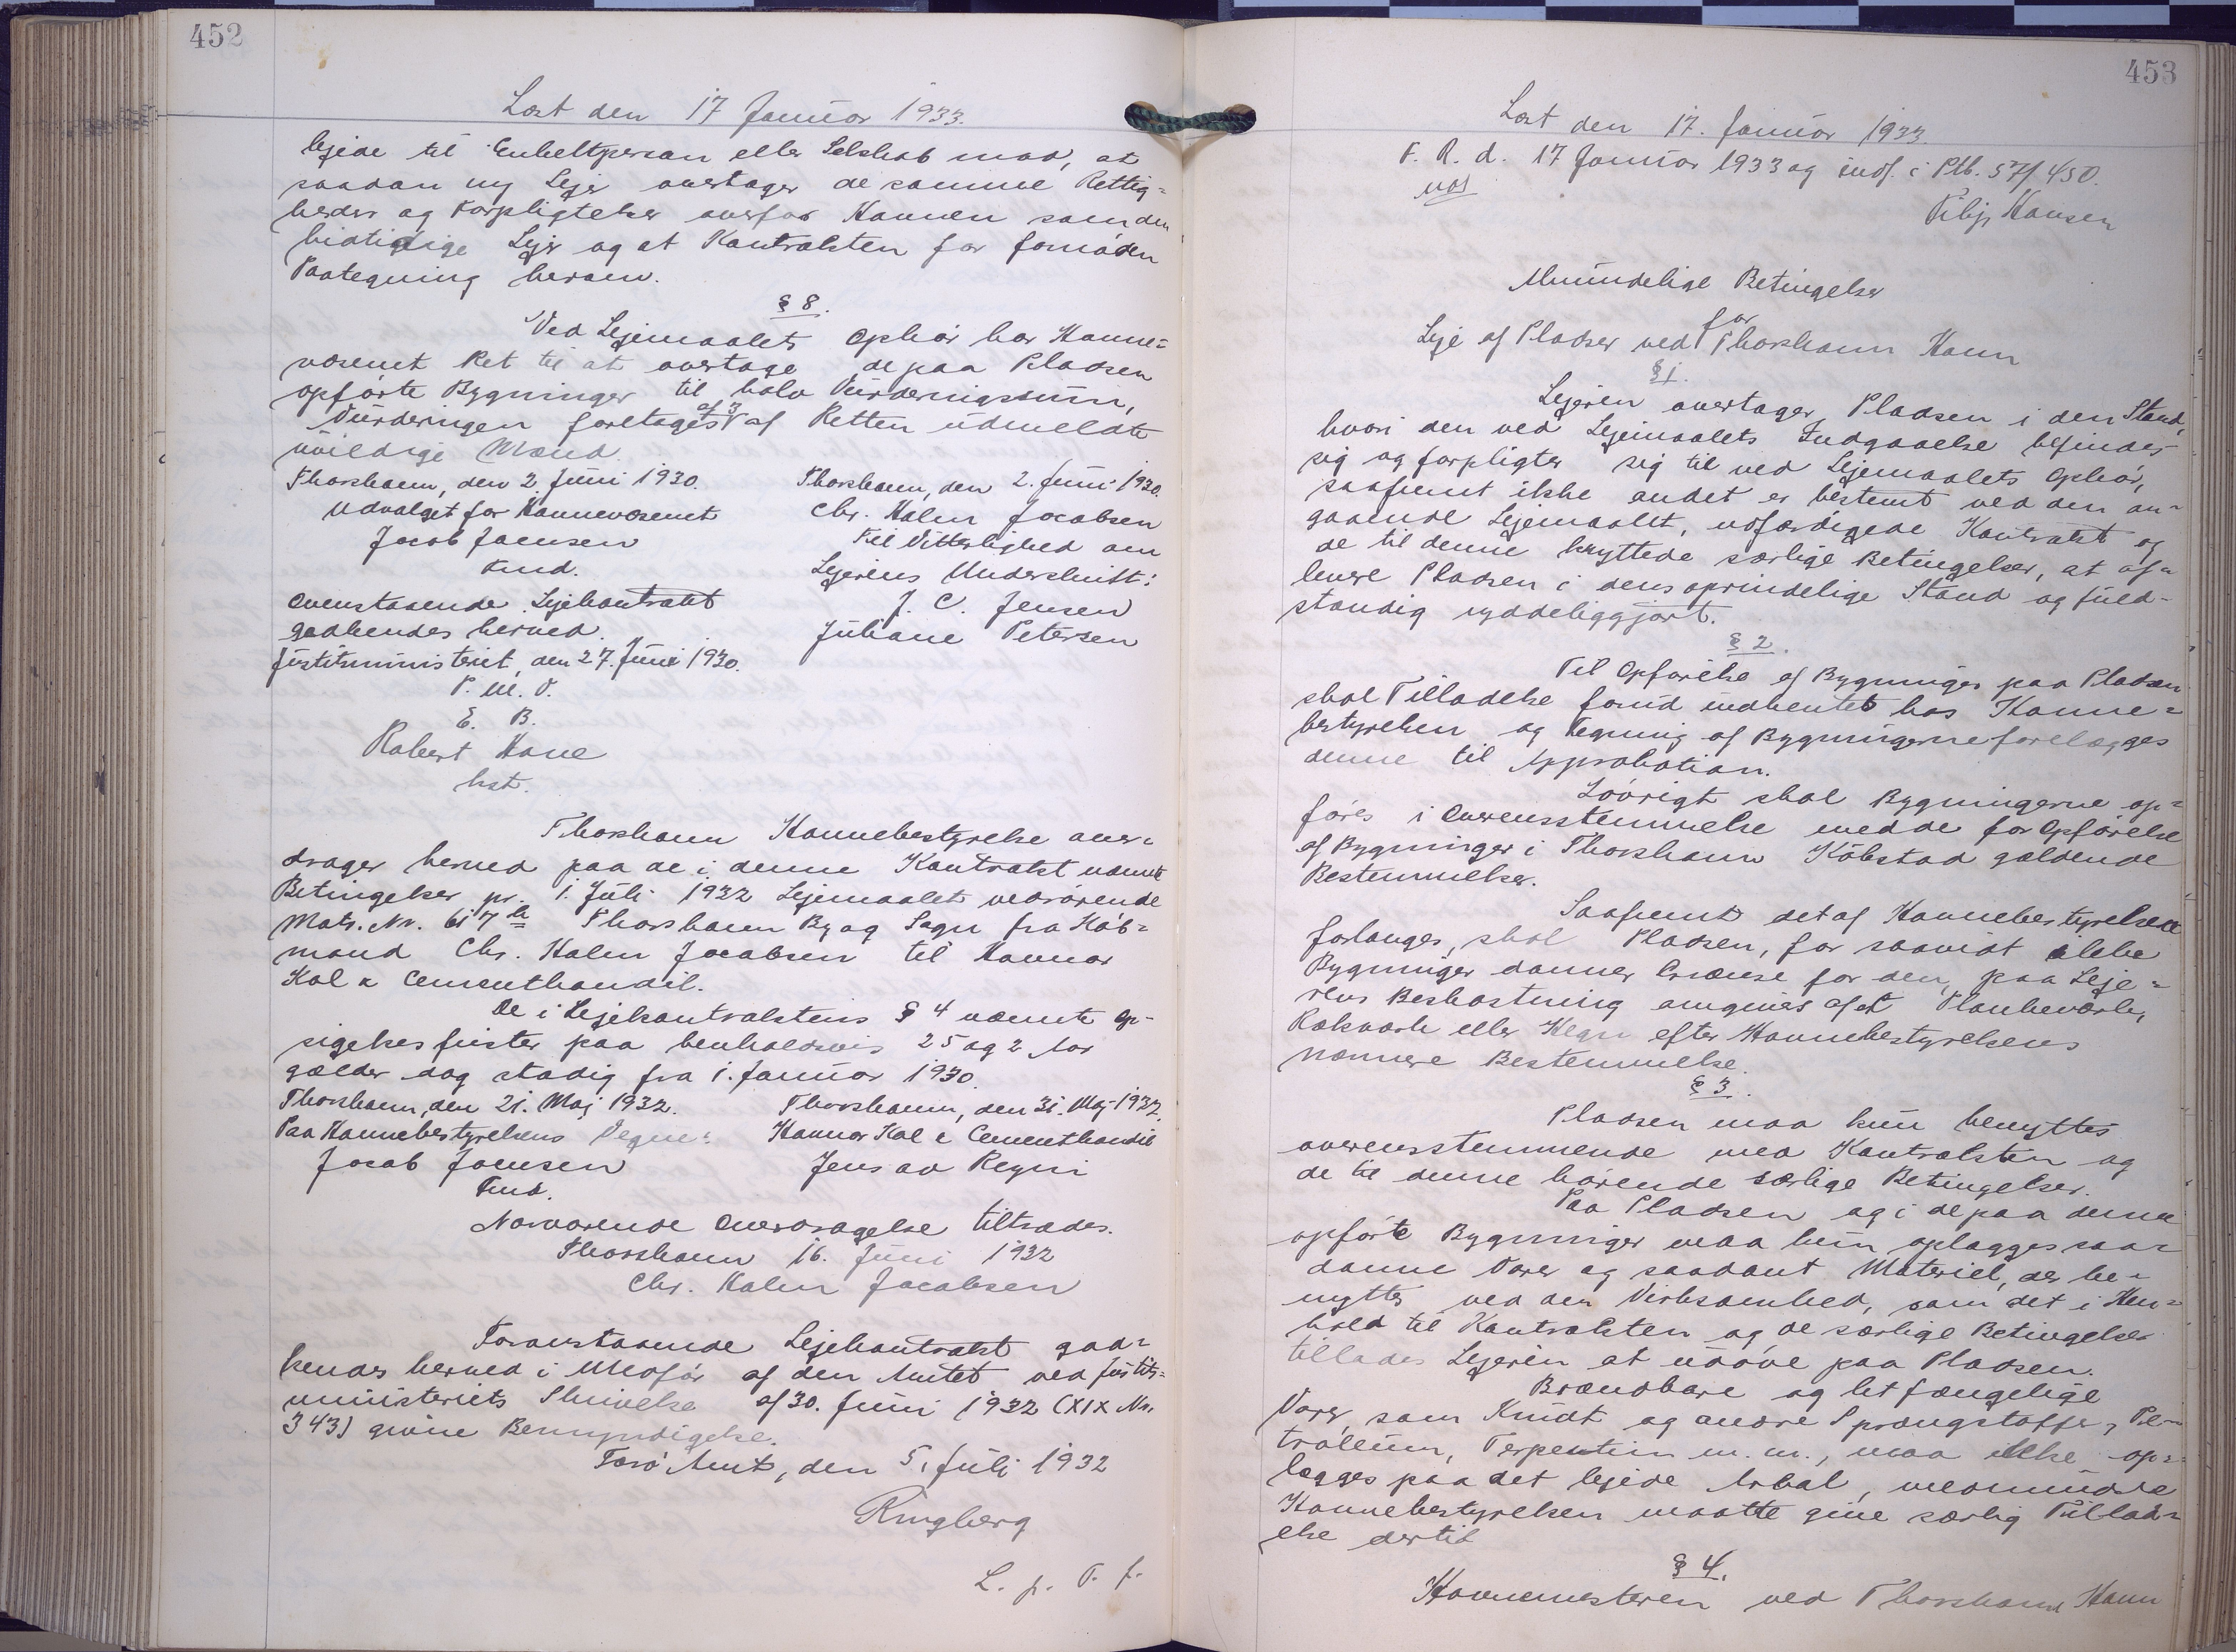 452
Læst den 17 Januar 1933.
lejede til Enkeltperson eller Selskab mod, at
saadan ny Lejer overtager de samme Rettig=
heder og Forpligtelser overfor Havnen som den
hidtidige Lejer og at Kontrakten faar fornöden
Paategning herom.
§ 8.
Ved Lejemaalets Ophör har Havne=
væsenet Ret til at overtage de paa Pladsen
opförte Bygninger til halv Vurderingssum,
Vurderingen foretages af 3 af Retten udmeldte
uvildige Mænd.
Thorshavn, den 2. Juni 1930.
Udvalget for Havnevæsenet
Jacob Joensen
Fmd.
Ovenstaaende Lejekontrakt
godkendes herved.
Justitsministeriet, den 27. Juni 1930.
P. M. V.
E. B.
Robert Hove
kst.
Thorshavn, den 2. Juni 1930.
Chr. Holm Jacobsen
Til Vitterlighed om
Lejerens Underskrift:
J. C. Jensen
Juliane Petersen
Thorshavn Havnebestyrelse over-
drager herved paa de i denne Kontrakt nævnte
Betingelser pr. 1. Juli 1932 Lejemaalet vedrörende
Matr. Nr. 617 b Thorshavn By og Sogn fra Köb=
mand Chr. Holm Jacobsen til Havnar
Kol & Cementhandil.
De i Lejekontraktens § 4 nævnte Op-
sigelsesfrister paa henholdsvis 25 og 2 Aar
gælder dog stadig fra 1. Januar 1930.
Thorshavn, den 21. Maj 1932.
Paa Havnebestyrelsens Vegne:
Jacob Joensen
Fmd.
Thorshavn, den 31. Maj 1932.
Havnar Kol & Cementhandil
Jens av Reyni
Nærværende Overdragelse tiltrædes.
Thorshavn 16. Juni 1932
Chr. Holm Jacobsen
Foranstaaende Lejekontrakt god=
kendes herved i Medför af den Amtet ved Justits=
ministeriets Skrivelse af 30. Juni 1932 (XIX Nr.
343) givne Bemyndigelse.
Færö Amt, den 5. Juli 1932
Ringberg
L. p. T. f.
453
Læst den 17. Januar 1933.
F. R. d. 17 Januar 1933 og indf. i Ptb. 57/450.
Vibj. Hansen
Almindelige Betingelser
for
Leje af Pladser ved Thorshavn Havn
§ 1.
Lejeren overtager Pladsen i den Stand,
hvori den ved Lejemaalets Indgaaelse befinder
sig og forpligter sig til ved Lejemaalets Ophör,
saafremt ikke andet er bestemt ved den an-
gaaende Lejemaalet, udfærdigede Kontrakt og
de til denne knyttede særlige Betingelser, at af=
levere Pladsen i dens oprindelige Stand og fuld-
stændig ryddeliggjort.
§ 2.
Til Opförelse af Bygninger paa Pladsen
skal Tilladelse forud indhentes hos Havne=
bestyrelsen og Tegning af Bygningerne forelægges
denne til Approbation.
Iövrigt skal Bygningerne op=
föres i Overensstemmelse med de for Opförelse
af Bygninger i Thorshavn Köbstad gældende
Bestemmelser.
Saafremt det af Havnebestyrelsen
forlanges, skal Pladsen, for saavidt ikke
Bygninger danner Grænse for den, paa Leje=
rens Bekostning omgives af et Plankeværk,
Rækværk eller Hegn efter Havnebestyrelsens
nærmere Bestemmelse.
§ 3.
Pladsen maa kun benyttes
overensstemmende med Kontrakten og
de til denne hörende særlige Betingelser.
Paa Pladsen og i de paa denne
opförte Bygninger maa kun oplægges saa=
danne Varer og saadant Materiel, der be-
nyttes ved den Virksomhed, som det i Hen=
hold til Kontrakten og de særlige Betingelser
tillades Lejeren at udöve paa Pladsen.
Brændbare og let fængelige
Varer, som Krudt og andre Sprængstoffer, Pe-
troleum, Terpentin m. m., maa ikke op=
lægges paa det lejede Areal, medmindre
Havnebestyrelsen maatte give særlig Tillad=
else dertil
§ 4.
Havnemesteren ved Thorshavn Havn